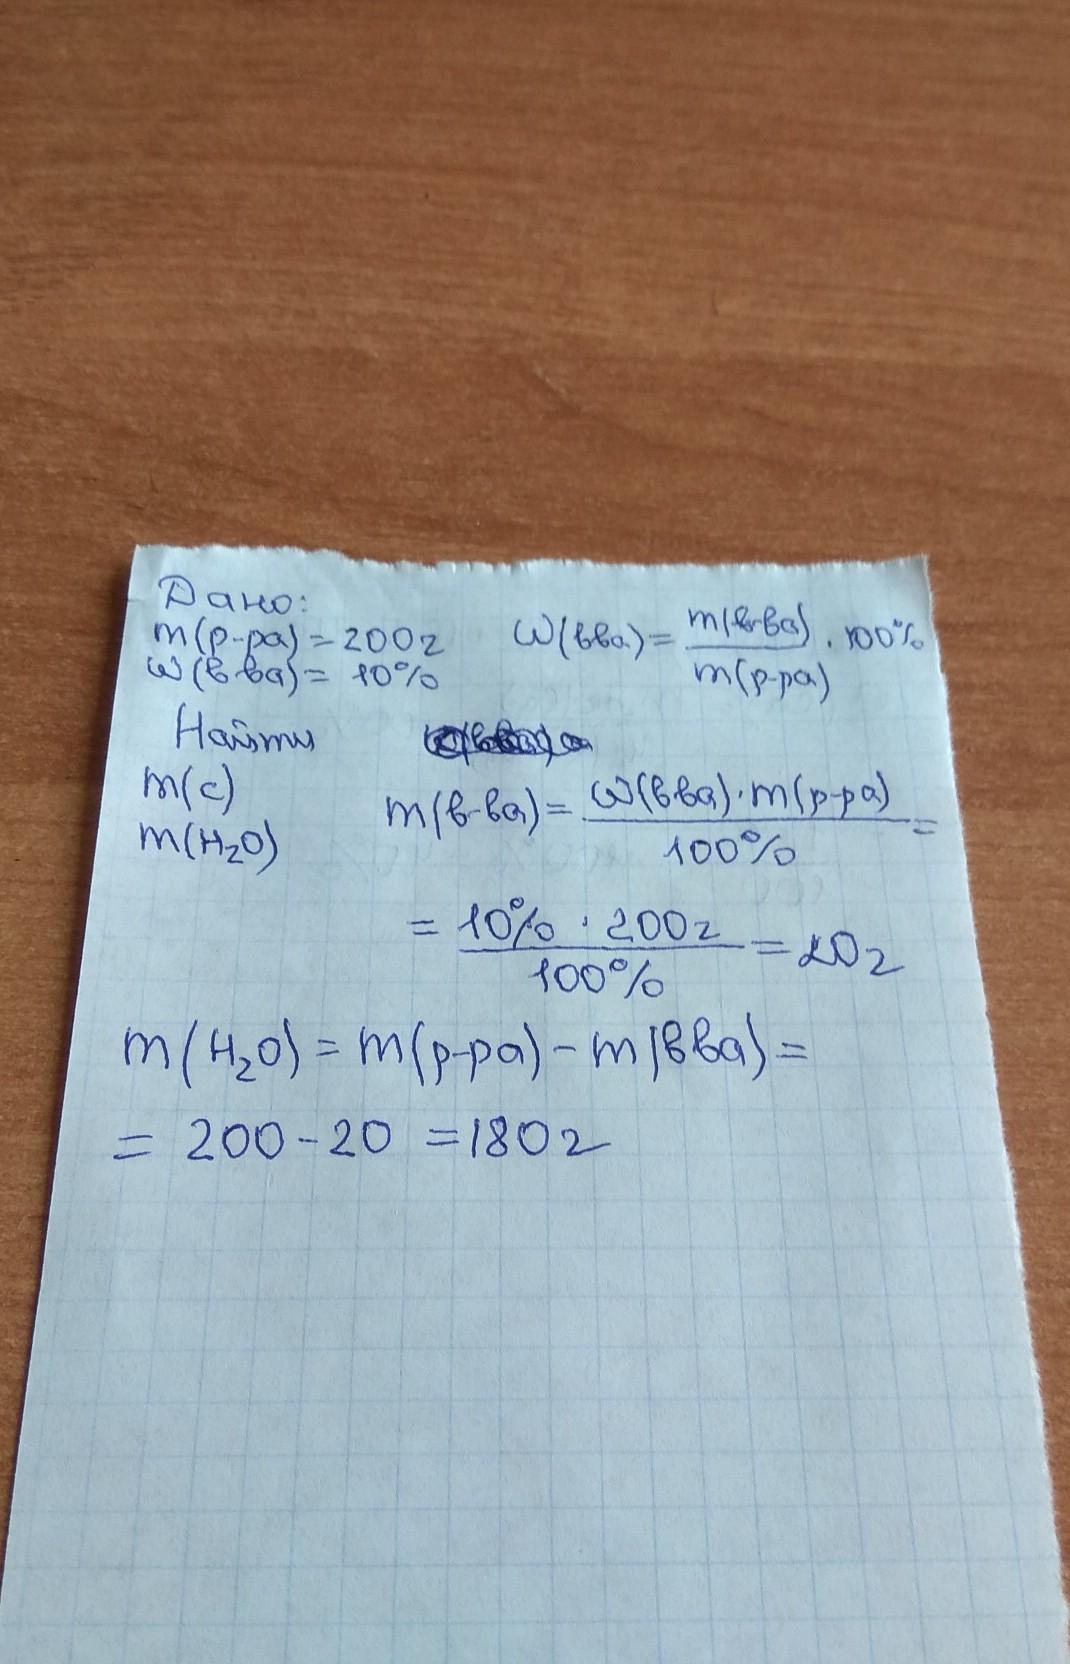 Дано:
m(р-ра) = 200г
ω(в ва) = 10%
ω(вва) = m(в-ва) / m(р-ра) · 100%
Найти
m(c)
m(H₂O)
m(в-ва) = ω(вва)·m(р-ра) / 100% =
= 10% · 200г / 100% = 20г
m(H₂O) = m(р-ра) - m(вва) =
= 200 - 20 = 180г